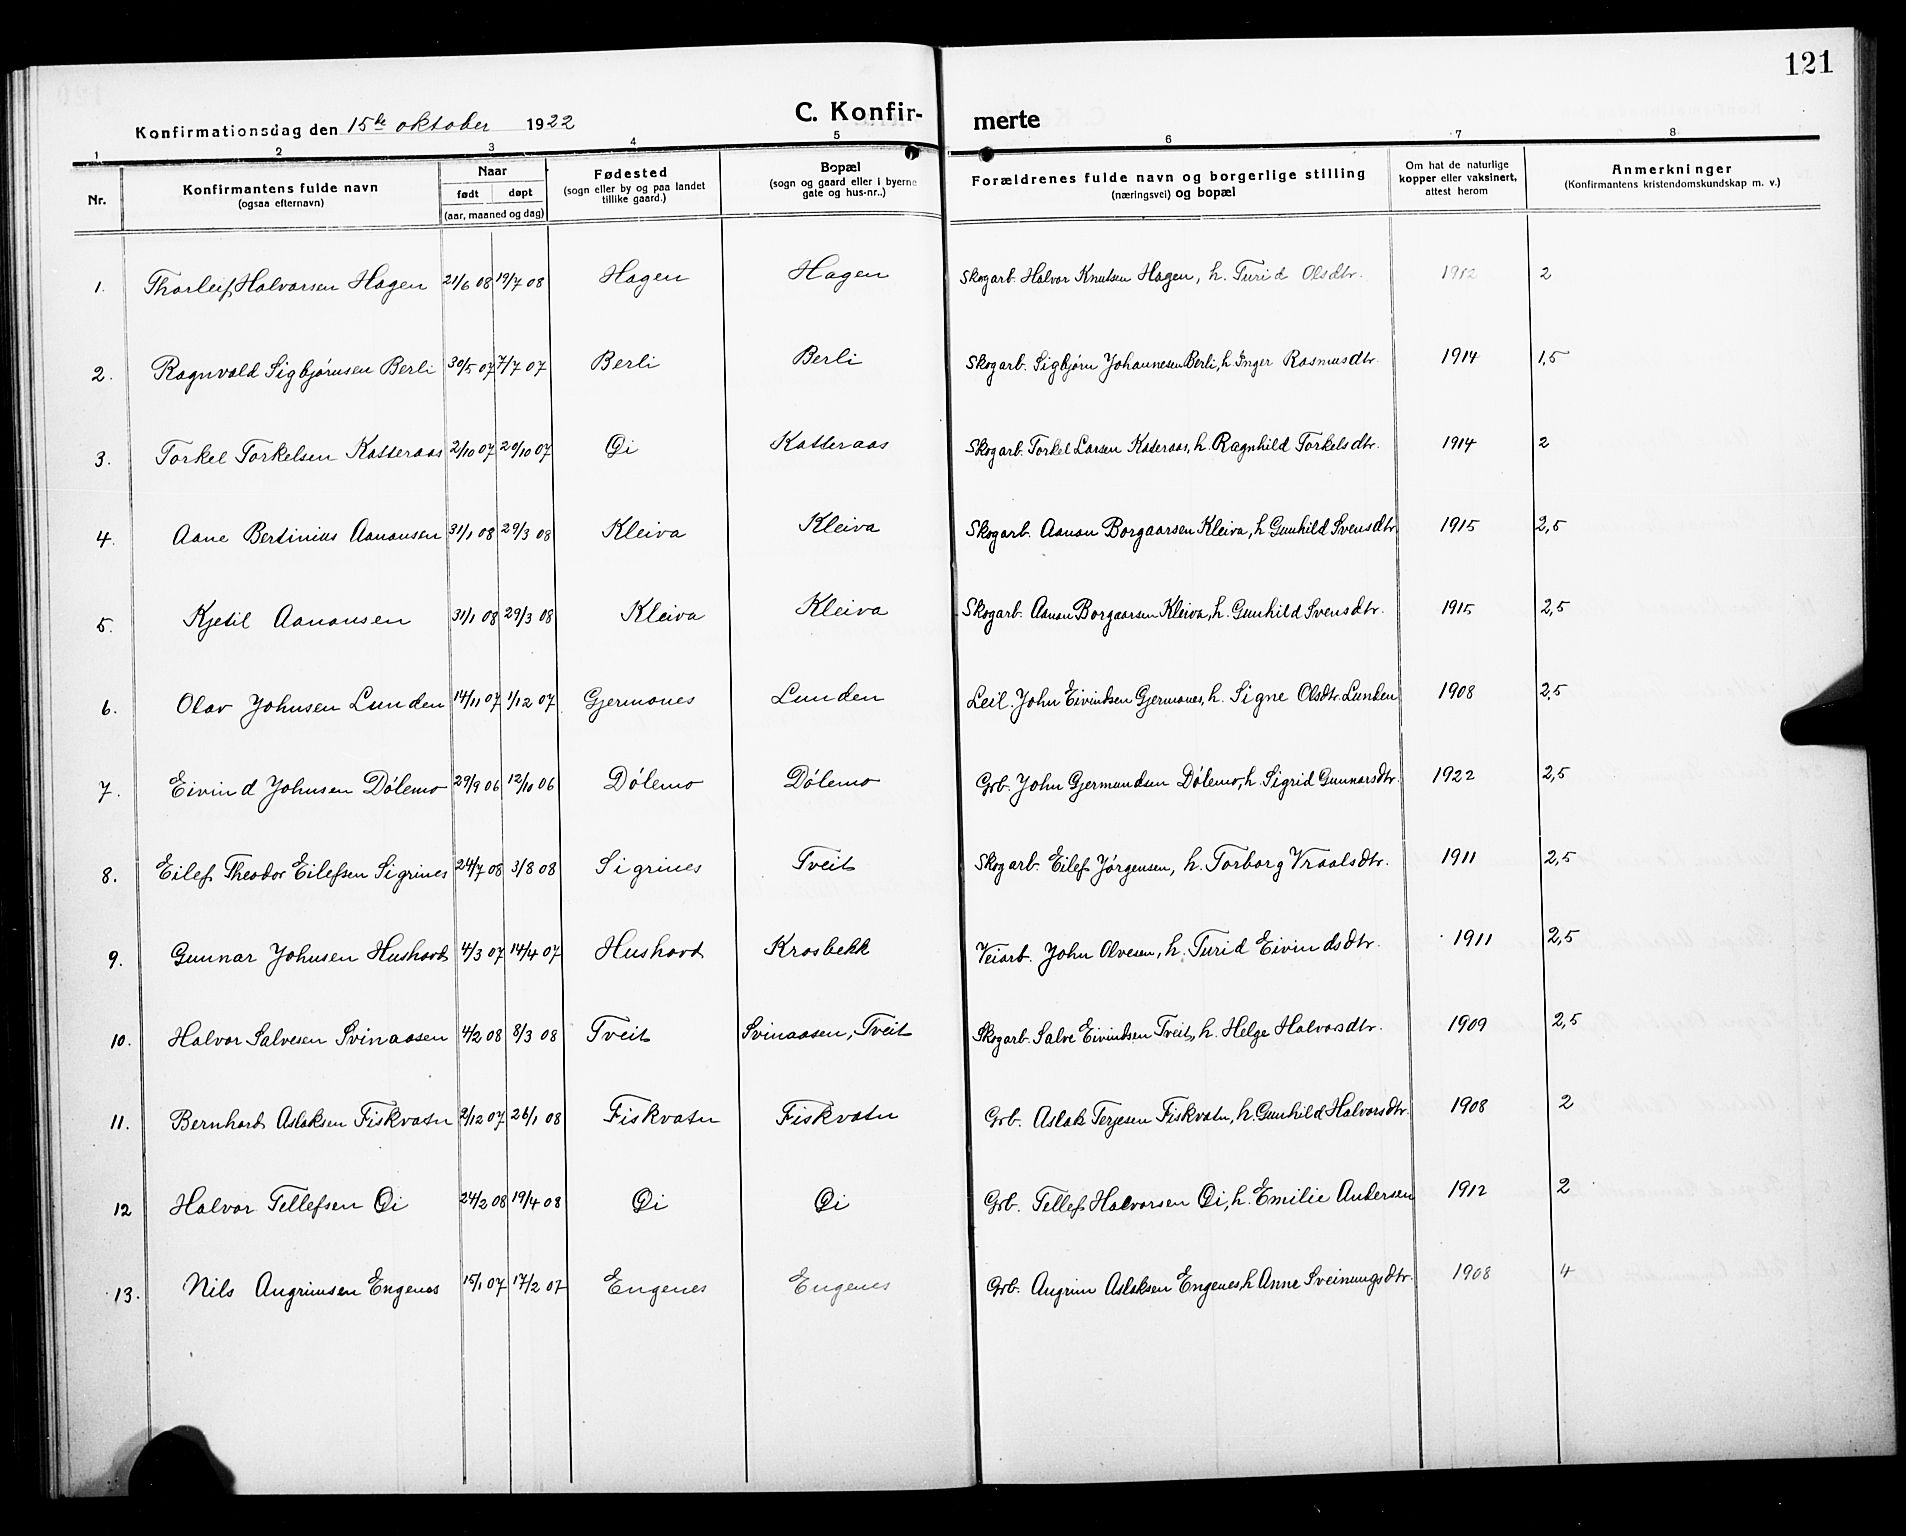 121
Konfirmationsdag den 15de oktober 1922 C. Konfir- merte
1 2 3 4 5 6 7 8
Nr. Konfirmantens fulde navn (ogsaa efternavn) Naar født døpt (aar, maaned og dag) Fødested (sogn eller by og paa landet tillike gaard.) Bopæl (sogn og gaard eller i byerne gate og hus-nr.) Forældrenes fulde navn og borgerlige stilling (næringsvei) og bopæl Om hat de naturlige kopper eller vaksinert, attest herom Anmerkninger (Konfirmantens kristendomskundskap m. v.)
1. Thorleif Halvorsen Hagen 21/6 08 19/7 08 Hagen Hagen Skogarb. Halvor Knutsen Hagen, h. Turid Olsdtr. 1912 2
2. Ragnvald Sigbjørnsen Berli 30/5 07 7/7 07 Berli Berli Skogarb. Sigbjørn Johannesen Berli, h. Inger Rasmusdtr. 1914 1,5
3. Torkel Torkelsen Katteraas 2/10 07 20/10 07 Øi Katteraas Skogarb. Torkel Larsen Katteraas, h. Ragnhild Torkelsdtr. 1914 2
4. Aane Bertinius Aanonsen 31/1 08 29/3 08 Kleiva Kleiva Skogarb. Aanon Borgaarsen Kleiva, h Gunhild Svensdtr 1915 2,5
5. Kjetil Aanonsen 31/1 08 29/3 08 Kleiva Kleiva Skogarb. Aanon Borgaarsen Kleiva, h. Gunhild Svensdtr. 1915 2,5
6. Olav Johnsen Lunden 14/11 07 1/12 07 Gjermones Lunden Leil. John Eivindsen Gjermones, h. Signe Olsdtr. Lunden 1908 2,5
7. Eivind Johnsen Dólemo 29/9 06 12/10 06 Dólemo Dólemo Grb. John Gjermundsen Dólemo, h. Sigrid Gunnarsdtr. 1922 2,5
8. Eilef Theodor Eilefsen Sigrines 24/7 08 3/8 08 Sigrines Tveit Skogarb. Eilef Jørgensen, h. Torborg Vraalsdtr. 1911 2,5
9. Gunnar Johnsen Hushovd 4/3 07 14/4 07 Hushovd Krosbekk Veiarb. John Olvesen, h. Turid Eivindsdtr. 1911 2,5
10. Halvor Salvesen Svinaasen 4/2 08 8/3 08 Tveit Svinaasen, Tveit Skogarb. Salve Eivindsen Tveit, h. Helge Halvorsdtr. 1909 2,5
11. Bernhard Aslaksen Fiskvatn 2/12 07 26/1 08 Fiskvatn Fiskvatn Grb. Aslak Terjesen Fiskvatn, h. Gunhild Halvorsdtr. 1908 2
12 Halvor Tellefsen Øi 24/2 08 19/4 08 Øi Øi Grb. Tellef Halvorsen Øi, h. Emilie Andersen 1912 2
13. Nils Angrimsen Engenes 15/1 07 17/2 07 Engenes Engenes Grb. Angrim Aslaksen Engenes h Anne Sveinungsdtr. 1908 4